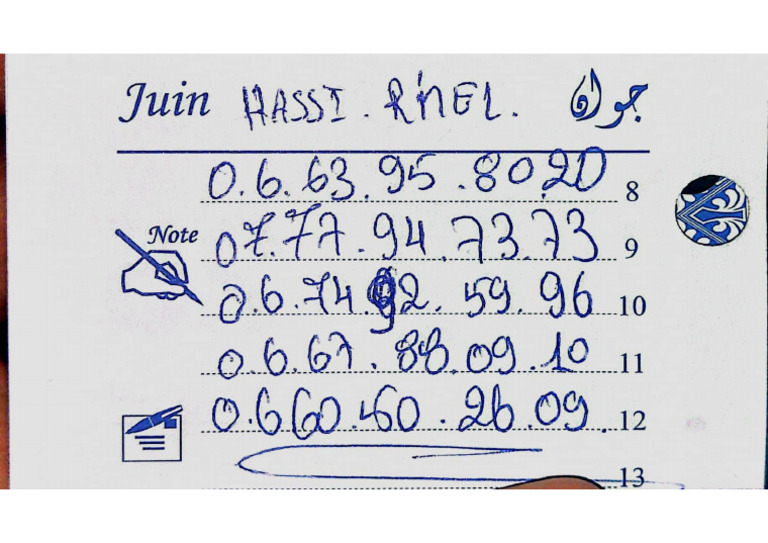 Juin HASSI. R'MEL. جوان
0.6.63.95.80.20 8
Note 07.77.94.73.73 9
0.6.74.92.59.96 10
0.6.67.88.09.10 11
0.660.60.26.09. 12
13